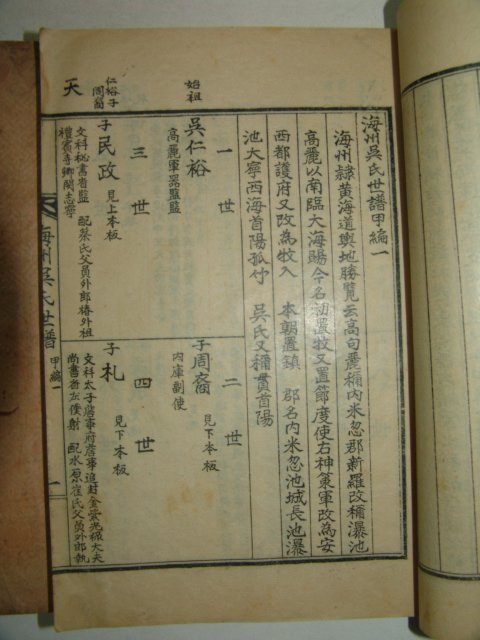 海州吳氏世譜甲編一
海州隷黃海道輿地勝覽云高句麗稱內米忽郡新羅改稱瀑池
高麗以南臨大海賜今名初置牧又置節度使右神策軍改為安
西都護府又改為牧入 本朝置鎮 郡名內米忽池城長池瀑
池大寧西海首陽孤竹 吳氏又稱貫首陽
始祖
一世
吳仁裕
高麗軍器監監
二世
子周裔 見下本板
內庫副使
仁裕子
周裔
三世
子民政 見上本板
文科秘書省監 配蔡氏父員外郎椿外祖
禮賓寺卿閔志寧
四世
子札 見下本板
文科太子詹事府詹事追封金紫光祿大夫
尚書省左僕射 配水原崔氏父員外郎執
天
海州吳氏世譜 甲編一 一